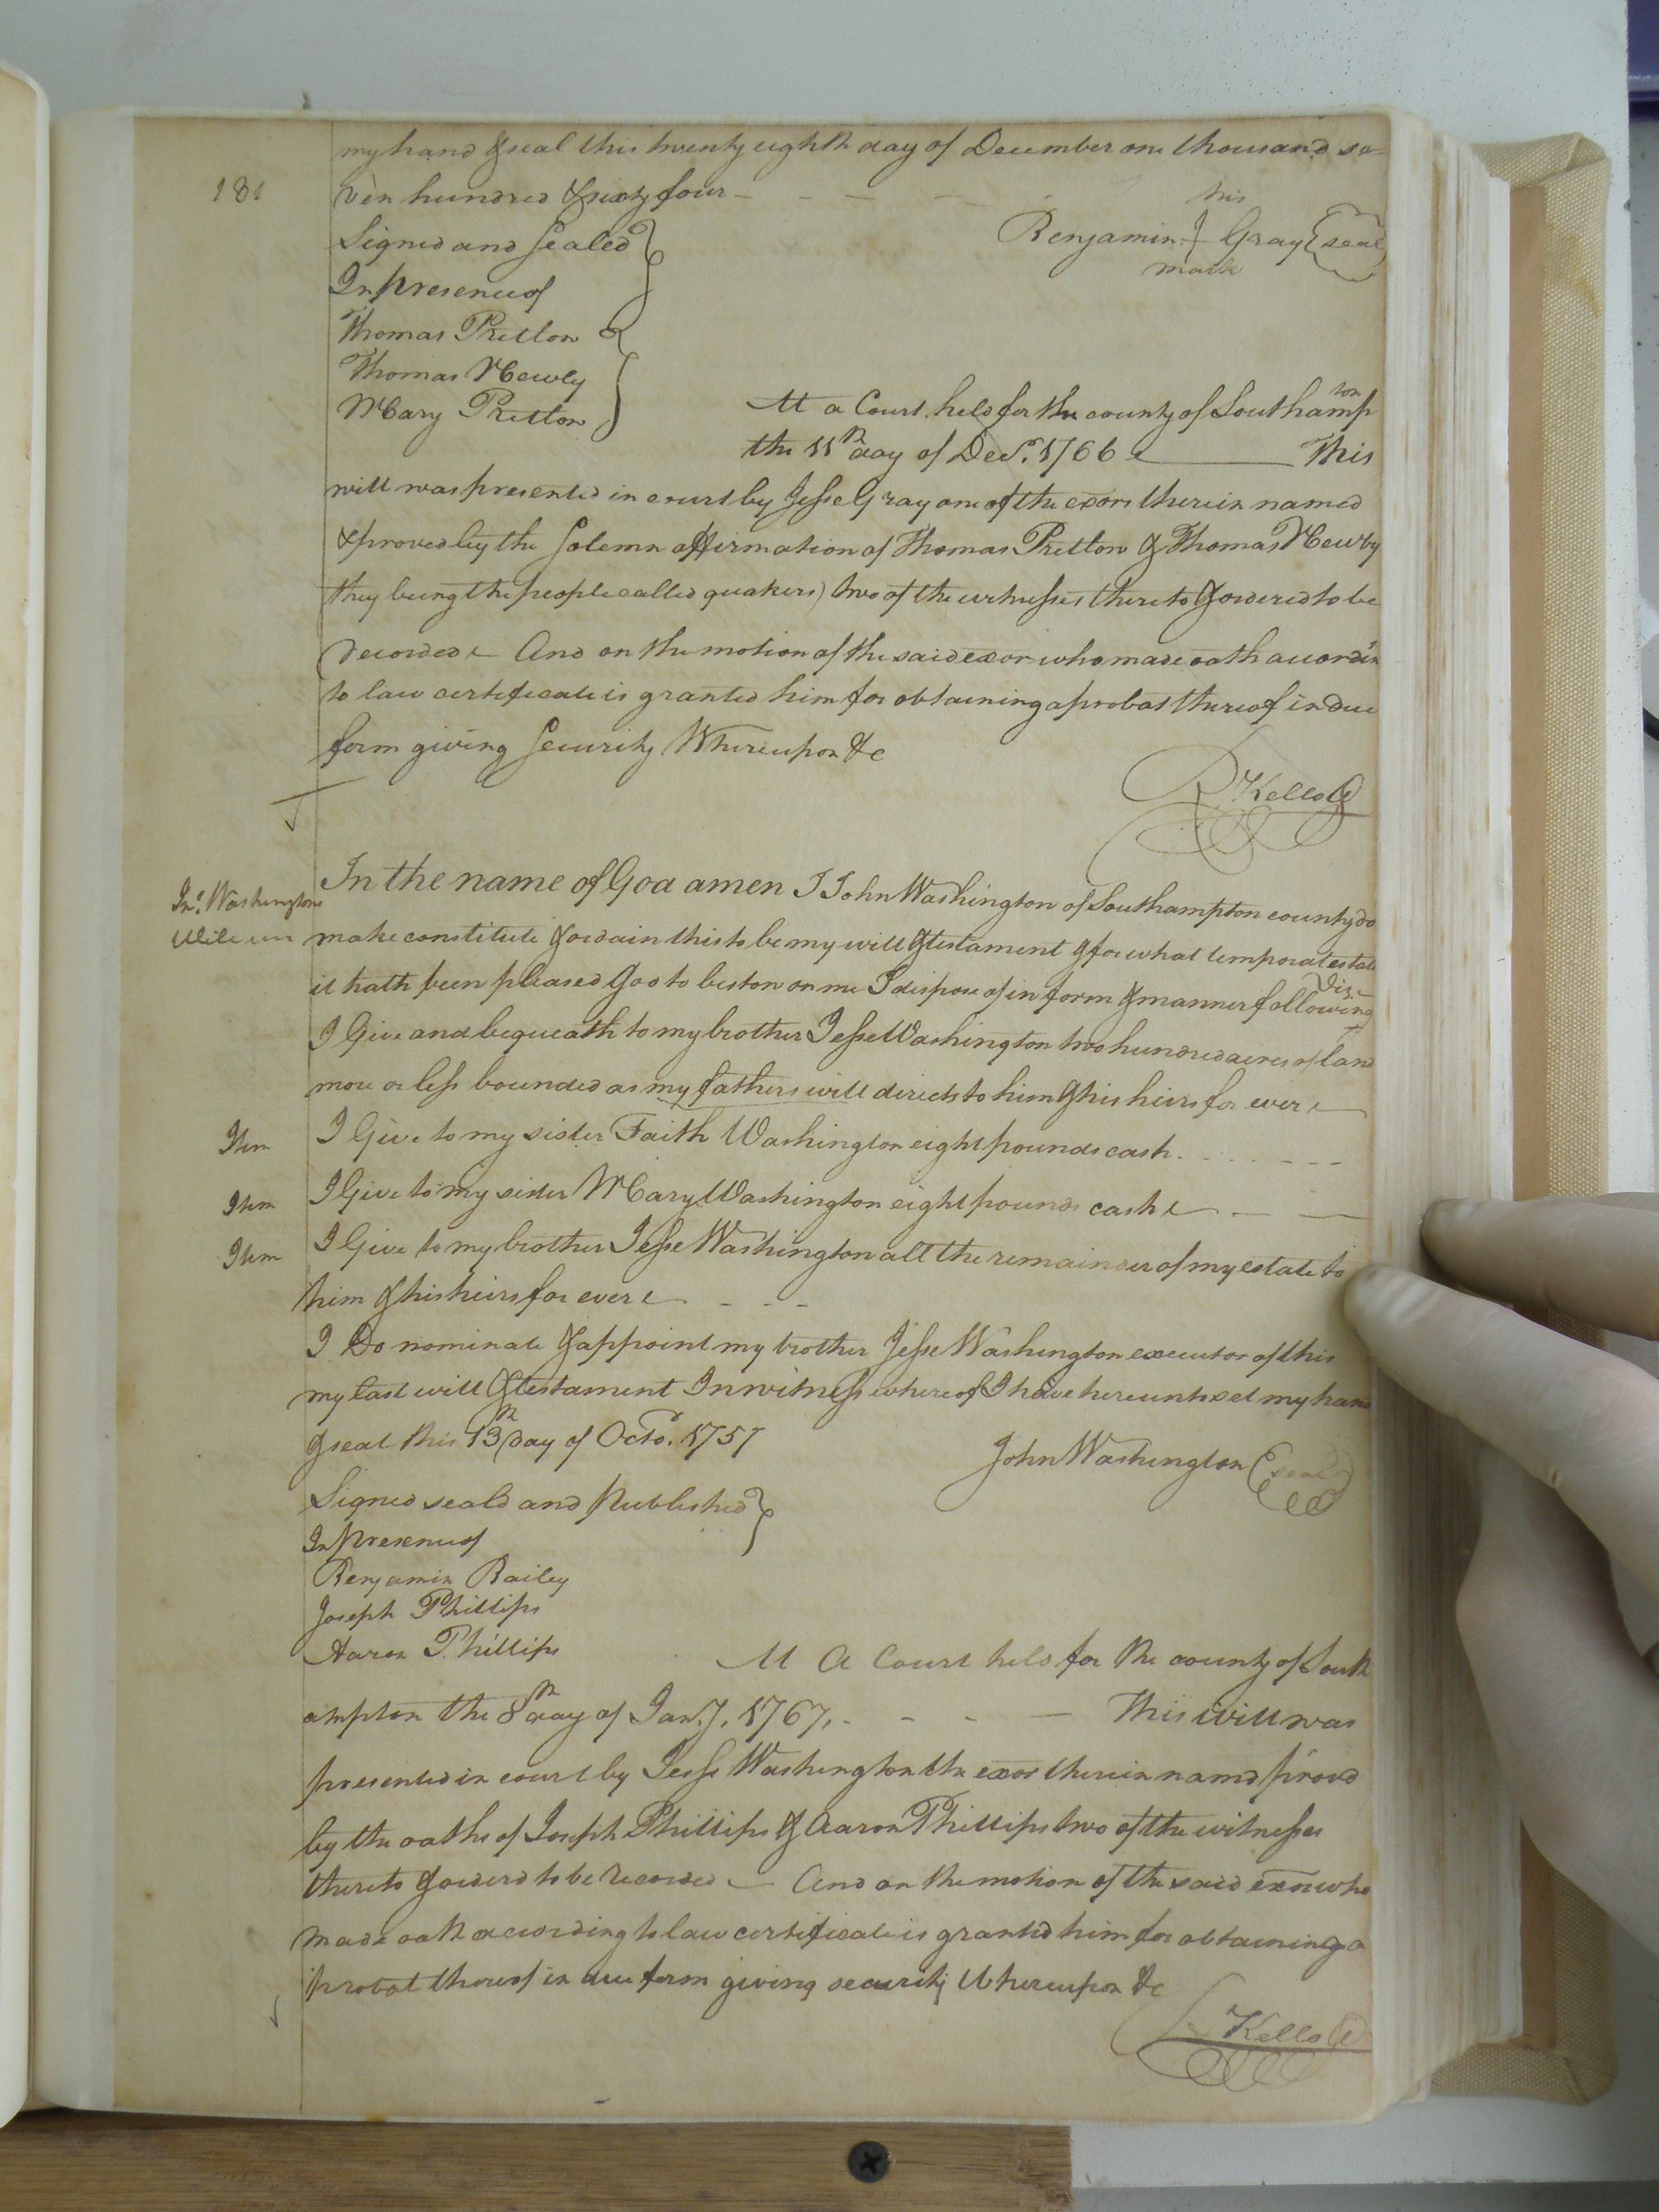 my hand & seal this twenty eighth day of December one thousand se
181
ven hundred & sixty four
his
Signed and Sealed
Benjamin Gray seal
mark
In presence of
Thomas Pretlow
Thomas Newby
Mary Pretlow
At a Court held for the county of Southampton
the 11th day of Decr. 1766 This
will was presented in court by Jesse Gray one of the exors therein named
& proved by the Solemn affirmation of Thomas Pretlow & Thomas Newby
they being the people called quakers) two of the witnesses thereto & ordered to be
recorded And on the motion of the said exor who made oath accordin
to law certificate is granted him for obtaining a probat thereof in due
form giving Security Whereupon &c
R Kello
Jno. Washingtons
In the name of God amen I John Washington of Southampton county do
make constitute & ordain this to be my will & testament & for what temporal estate
it hath been pleased God to bestow on me I dispose of in form & manner following Viz.
I Give and bequeath to my brother Jesse Washington two hundred acres of land
more or less bounded as my fathers will directs to him & his heirs for ever
Item I Give to my sister Faith Washington eight pounds cash
Item I Give to my sister Mary Washington eight pounds cash
Item I Give to my brother Jesse Washington all the remainder of my estate to
him & his heirs for ever
I Do nominate & appoint my brother Jesse Washington executor of this
my last will & testament In witness whereof I have hereunto set my hand
& seal this 13th day of Octo. 1757
John Washington seal
Signed seald and Published
In presence of
Benjamin Bailey
Joseph Phillips
Aaron Phillips
At A Court held for the county of South
ampton the 8th day of Jany. 1767. This will was
presented in court by Jesse Washington the exor therein namd provd
by the oaths of Joseph Phillips & Aaron Phillips two of the witnesses
thereto & orderd to be recorded And on the motion of the said exor who
made oath according to law certificate is granted him for obtaining a
probat thereof in due form giving security Whereupon &c
R Kello